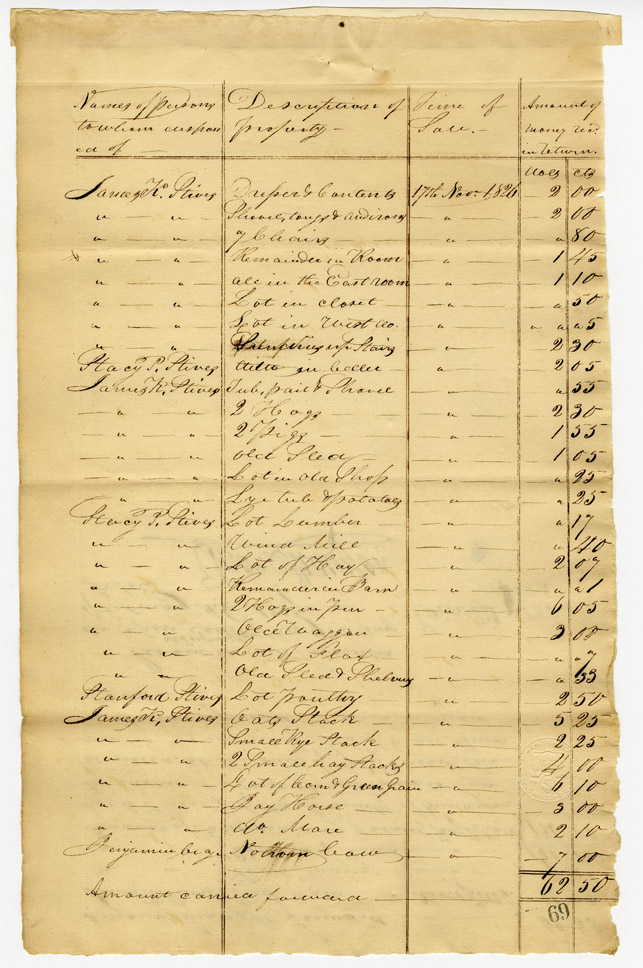 Names of persons Description of Time of Amount of
to whom dispos property — Sale. — money recd.
ed of — in return.
Dolls cts
James K. Stives Dresser & Contents 17th Novr. 1826 2 00
" — " — Shovel, tongs & andirons — " — 2 00
" — " — 7 Chairs — " — " 80
" — " — Remainder in Room — " — 1 45
" — " — all in the East room — " — 1 10
" — " — Lot in closet — " — " 50
" — " — Lot in West do. — " — " " 5
" — " — up Stairs — " — 2 30
Stacy P. Stives ditto in celler — " — 2 05
James K. Stives Tub, pail & Shovel — " — " 55
— " — " 2 Hogs — " — 2 30
— " — " 2 Pigs — — " — 1 55
— " — " Old Sled — — " — 1 05
— " — " Lot in Old Shop — " — " 25
— " — " Lye tub & potatoes — " — " 25
Stacy P. Stives Lot Lumber — " — " 17
" — " Wind Mill — " — " 40
" — " Lot of Hay — " — 2 07
" — " Remainder in Barn — " — " " 1
" — " 2 Hogs in pen — — " — 6 05
" — " Old Waggon — " — 3 00
" — " Lot of Flax — " — " 7
" — " Old Sled & Shelving — " — " 33
Stanford Stives Lot poultry — " — 2 50
James K. Stives Oats Stack — " — 5 25
" — " Small Rye Stack — " — 2 25
" — " 2 Small hay Stacks — " — 4 00
" — " Lot of Corn & Green Grain — " — 6 10
" — " Bay Horse — " — 3 00
" — " do. Mare — " — 2 10
Benjamin Cow — " — 7 00
62 50
Amount carried forward
69